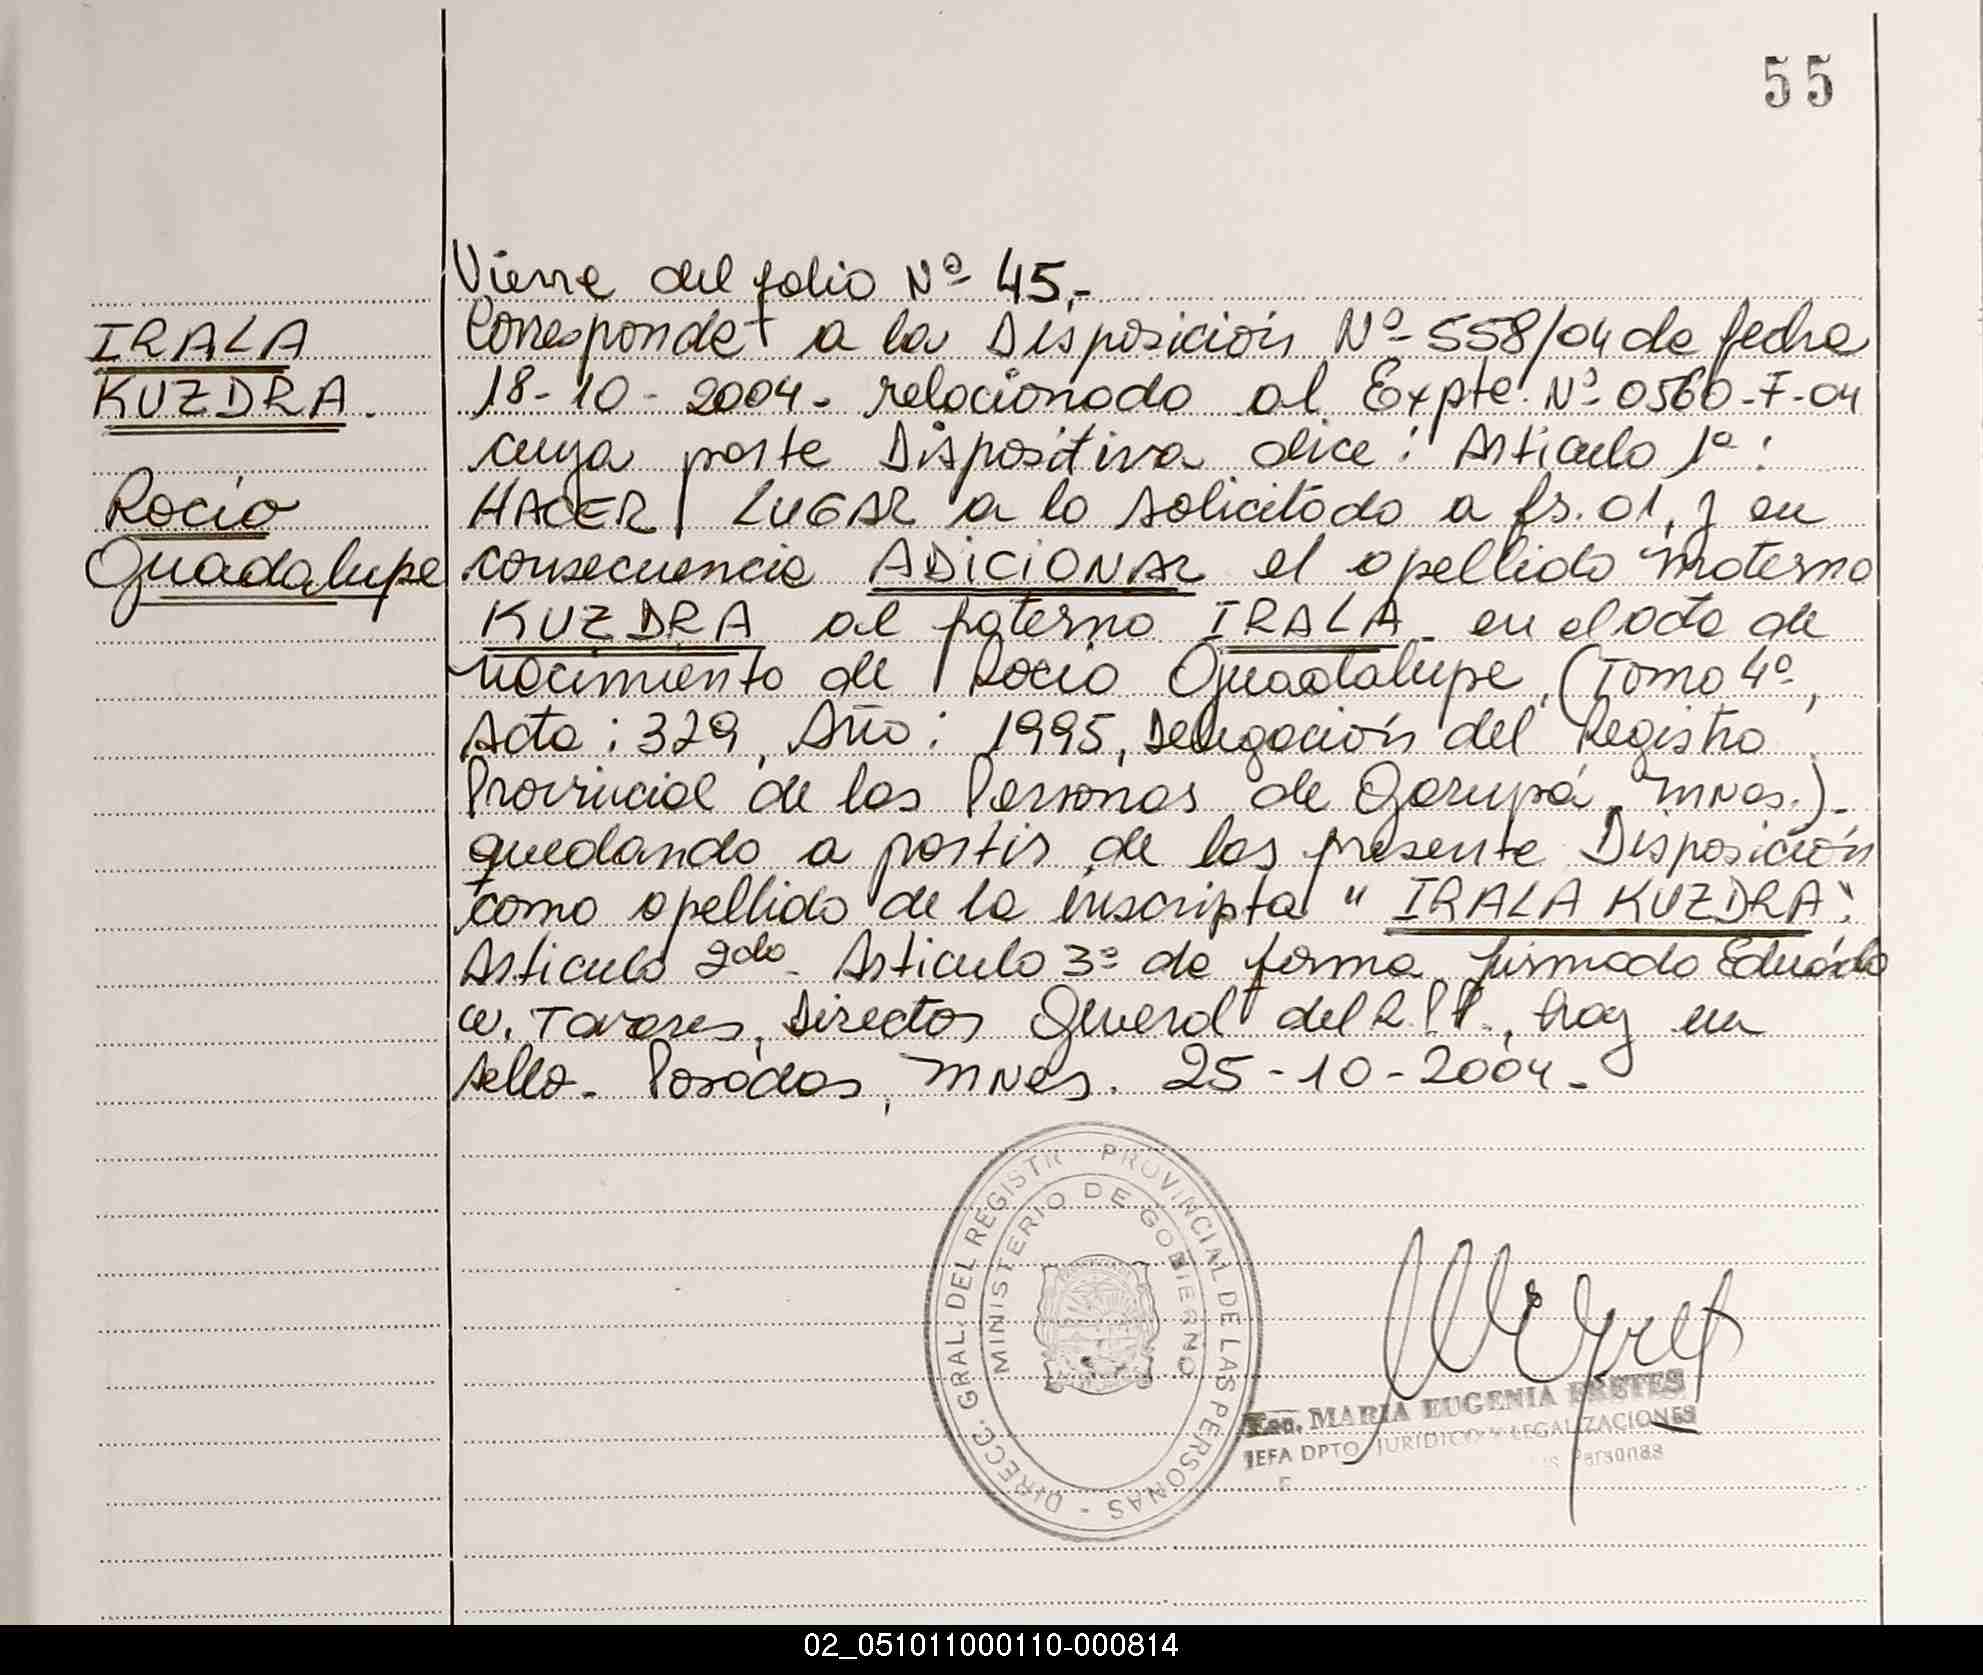 55
Viene del folio Nº 45.-
IRALA
KUZDRA.
Rocío
Guadalupe
Corresponde a la Disposición Nº 558/04 de fecha
18-10-2004. relacionado al Expte. Nº 0560-I-04
cuya parte Dispositiva dice: Articulo 1º:
HACER LUGAR a lo solicitado a fs. 01, y en
consecuencia ADICIONAR el apellido materno
KUZDRA al paterno IRALA en el acta de
nacimiento de Rocio Guadalupe, (Tomo 4º,
Acta: 329, Año: 1995, Delegación del Registro
Provincial de las Personas de Garupá, Mnes.)-
quedando a partir de las presente Disposición
como apellido de la inscripta "IRALA KUZDRA".
Articulo 2do- Articulo 3º de forma, firmado Eduardo
W. Tavares, Director General del R.P.P., hay un
sello- Posadas, Mnes. 25-10-2004.-
DIRECC. GRAL. DEL REGISTR PROVINCIAL DE LAS PERSONAS -
MINISTERIO DE GOBIERNO
Esc. MARIA EUGENIA FRETES
JEFA DPTO. JURIDICO Y LEGALIZACIONES
Personas
02_051011000110-000814